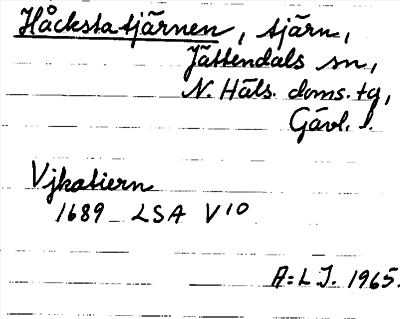 Håckstatjärnen, tjärn,
Jättendals sn,
N. Häls. doms. tg,
Gävl. l.
Vjkatiern
1689 LSA V10
A:L J. 1965.